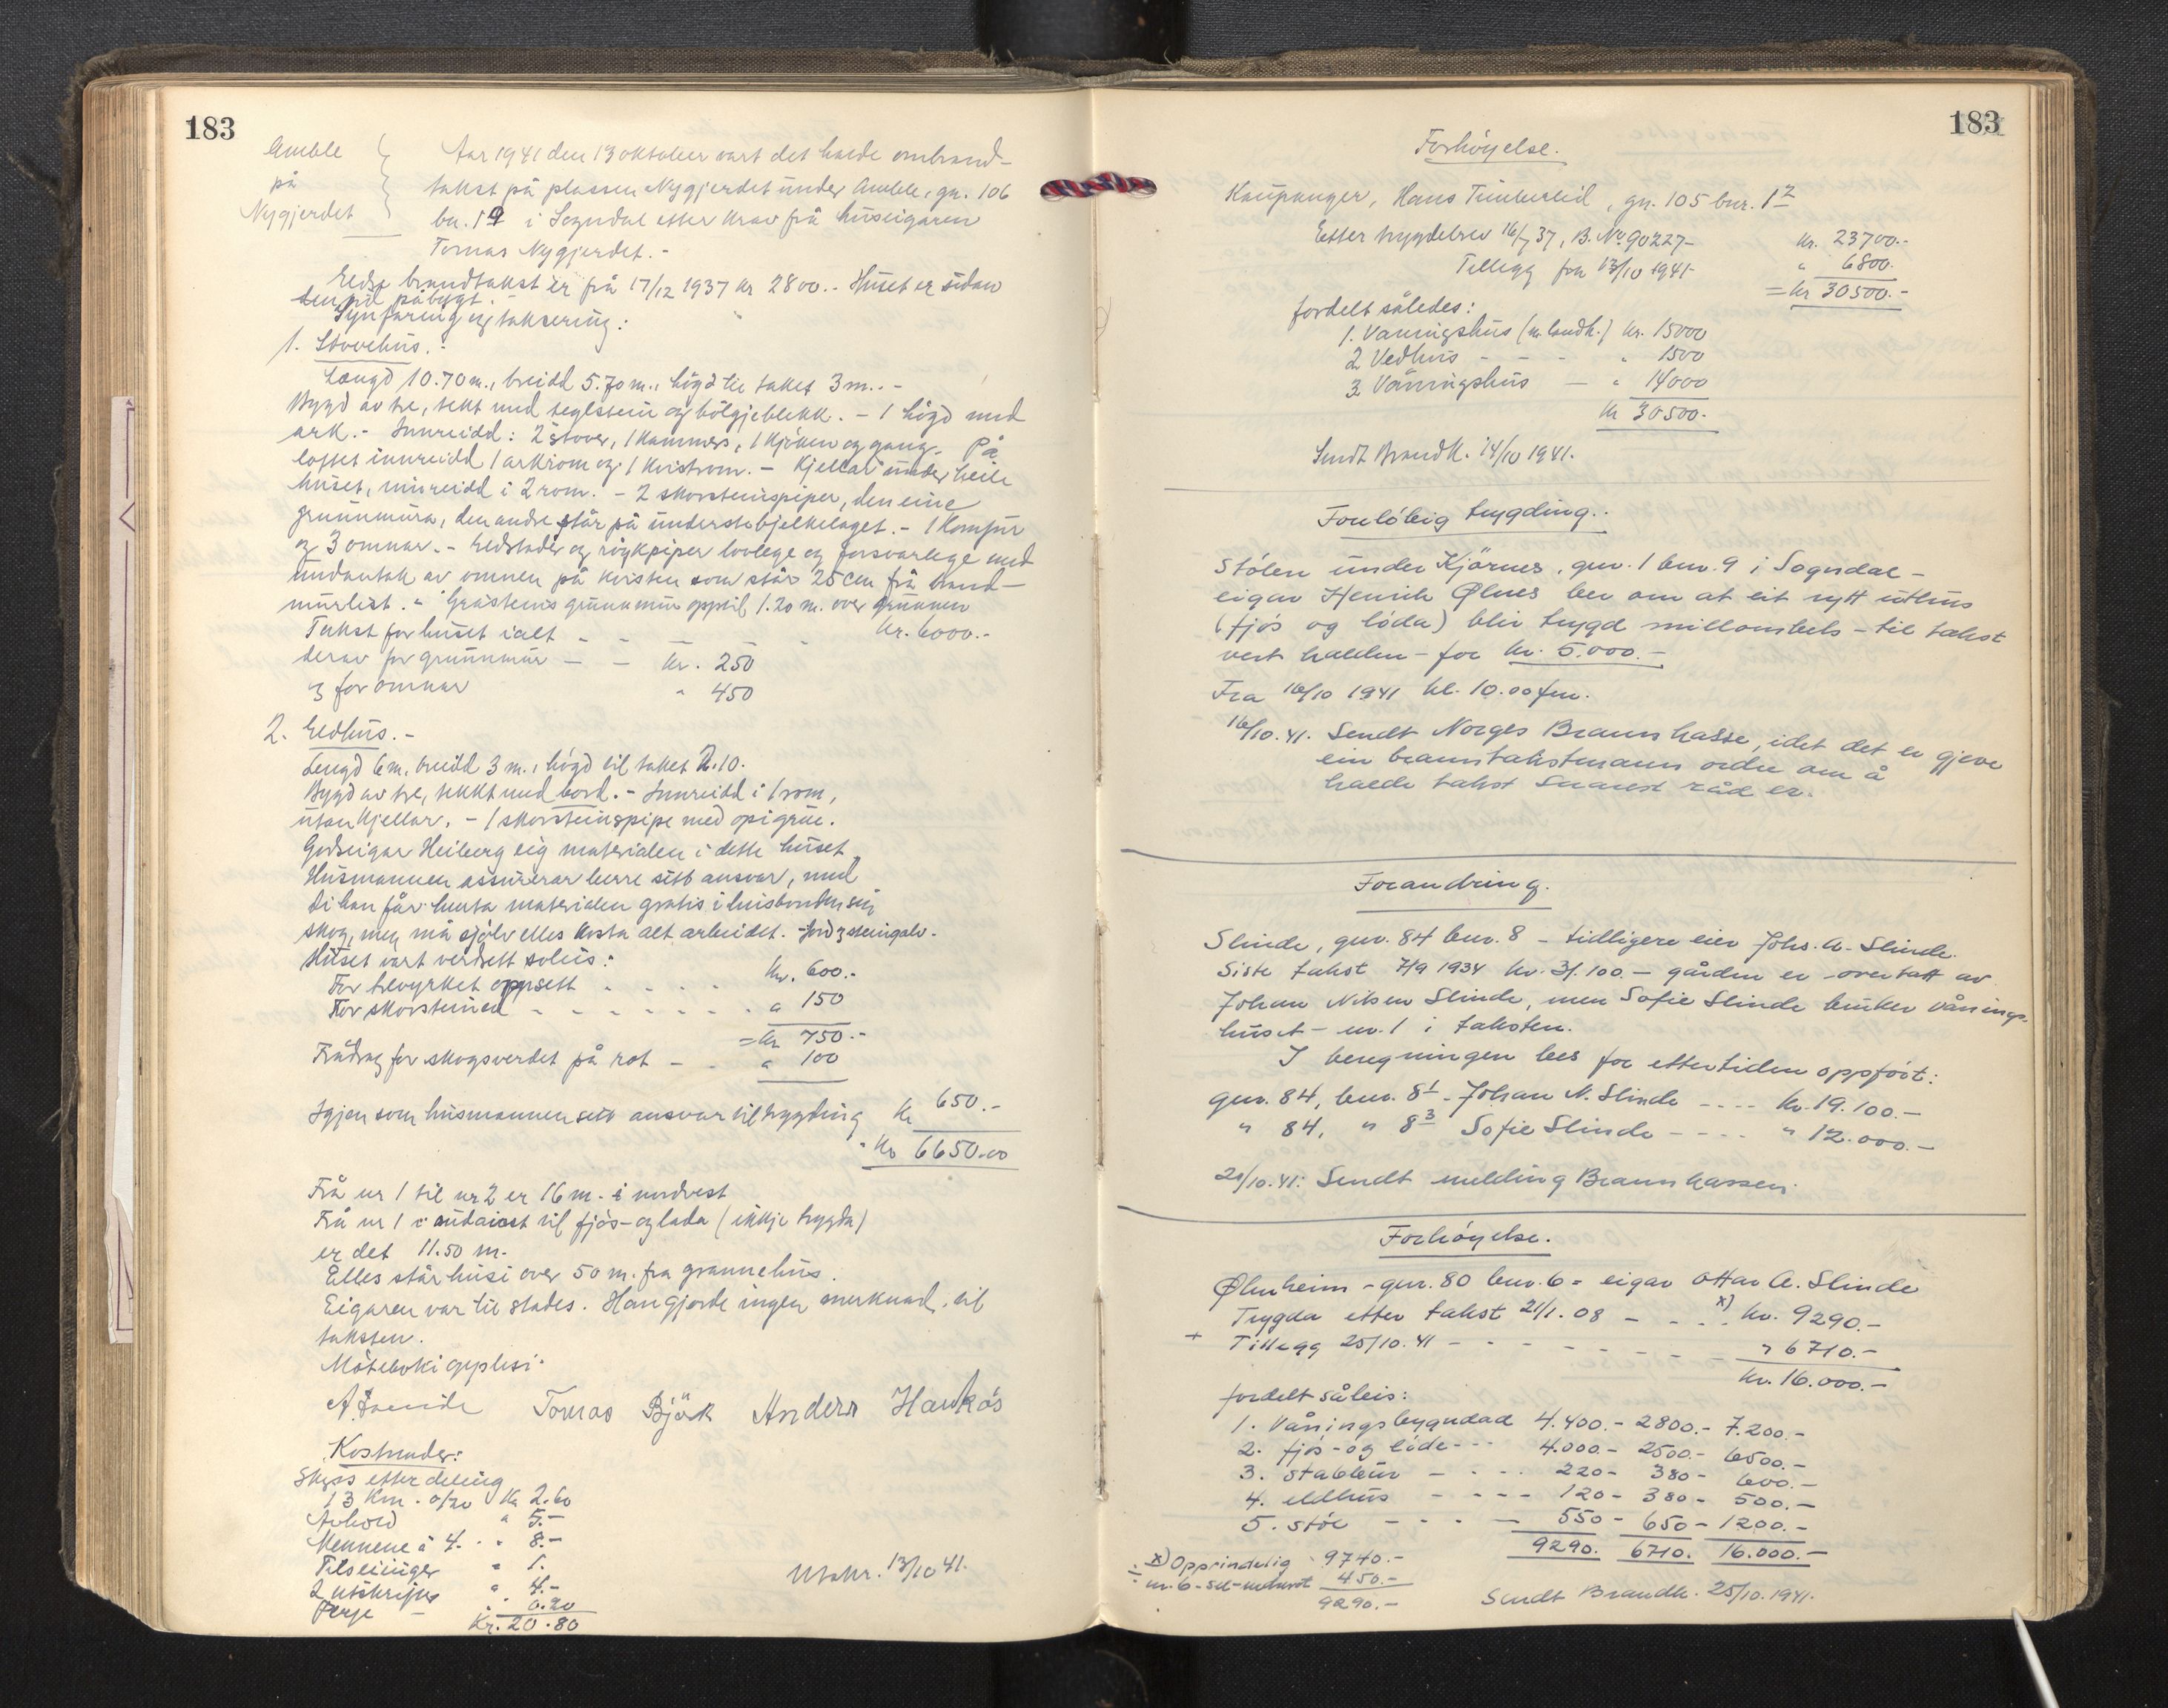 183
Amble
på
Nygjerdet
Aar 1941 den 13 oktober vart det halde ombrand-
takst på plassen Nygjerdet under Amble, gn. 106
bn. 19 i Sogndal etter krav frå huseigaren
Tomas Nygjerdet.-
Eldre brandtakst er frå 17/12 1937 kr 2800.- Huset er sidan
den tid påbygt.-
Synfaring og taksering:
1. Stovehus.-
Længd 10.70 m., breidd 5.70 m., högd til taket 3 m..-
Bygd av tre, tekt med teglstein og bölgjeblekk. - 1 högd med
ark.- Innreidd: 2 stover, 1 kammers, 1 kjöken og gang. På
loftet innreidd 1 arkrom og 1 kvistrom. - Kjellar under heile
huset, innreidd i 2 rom. - 2 skorsteinspiper, den eine
grunnmura, den andre står på understebjelkelaget. - 1 komfyr
og 3 omnar. - Eldstader og röykpiper lovlege og forsvarlege med
undantak av omnen på kvisten som står 25 cm frå brand-
murlist. - Gråsteins grunnmur opptil 1.20 m. over grunnen
Takst for huset ialt - - - - kr. 6000.-
derav for grunnmur - - kr. 250
og for omnar " 450
2. Eldhus.-
Lengd 6 m, breidd 3 m., högd til taket 2.10.
Bygd av tre, tekkt med bord. - Innreidd i 1 rom,
utan kjellar. - 1 skorsteinspipe med opi grue.
Godseigar Heiberg eig materialen i dette huset.
Husmannen assurerar berre sitt ansvar, med
di han får henta materialen gratis i husbonden sin
skog, men må sjölv elles kosta alt arbeidet. - Jord og steingolv.
Huset vart verdsett soleis:
For trevyrket oppsett - - - - kr. 600.-
For skorsteinen - - - - - - " 150
= kr 750.-
Frådrag for skogsverdet på rot - - " 100
Igjen som husmannen sitt ansvar til trygding kr 650.-
- kr 6650.00
Frå nr 1 til nr 2 er 16 m. i nordvest
Frå nr 1 i sudaust til fjös- og lada (ikkje trygda)
er det 11.50 m.
Elles står husi over 50 m. fra grannehus.
Eigaren var til stades. Han gjorde ingen merknad til
taksten.
Möteboki opplesi.
Tomas Björk Anders Haukås
Kostnader:
Skyss etter deling
13 km. o/20 kr 2.60
Avhold " 5.-
Mennene à 4. - " 8.-
Tilseiinger " 1.
2 utskrifter " 4.-
Ferje - " 0.20
Kr. 20.80
Utskr. 13/10 41.
183
Forhöyelse.
Kaupanger, Hans Timberlid, gn. 105 bnr. 17
Etter trygdebrev 16/7 37, B. No 90227- kr. 23700.-
Tillegg fra 13/10 1941- " 6800.
= kr 30500.-
fordelt således:
1. Vaningshus (m. landh.) kr. 15000
2 Vedhus - - - " 1500
3 Våningshus - " 14000
kr 30500.-
Sendt Brandk. 14/10 1941.
Forelöbig trygding.
Stölen under Kjörnes, gnr. 1 bnr. 9 i Sogndal -
eigar Henrik Ølnes ber om at eit nytt uthus
(fjös og löda) blir trygd millombels - til takst
vert halden - for kr. 5.000.-
Fra 16/10 1941 kl. 10.00 fm.
16/10.41. Sendt Norges Brannkasse, idet det er gjeve
ein branntakstmann ordre om å
halde takst snarest råd er.
Forandring.
Slinde, gnr. 84 bnr. 8 - tidligere eier Johs. A. Slinde.
Siste takst 7/9 1934 kr. 31.100.- gården er overtatt av
Johan Nilsen Slinde, men Sofie Slinde bruker vånings-
huset - nr. 1 i taksten.
I beregningen bes for ettertiden oppfört:
gnr. 84, bnr. 8¹ - Johan N. Slinde ---- kr. 19.100.-
" 84, " 8³ Sofie Slinde ---- " 12.000.-
20/10.41: Sendt melding Brannkassen.
Forhöyelse.
Ølnheim - gnr. 80 bnr. 6 - eigar Ottar A. Slinde
Trygda etter takst 21/1. 08 - - - x) kr. 9290.-
+ Tillegg 25/10.41 - - - - - - " 6710.-
kr. 16.000.-
fordelt såleis:
1. Våningsbygndad 4.400.- 2800.- 7.200.-
2. fjös- og löde --- 4.000.- 2500.- 6500.-
3. stabbur - - - - 220.- 380.- 600.-
4. eldhus - - - - 120.- 380.- 500.-
5. stöl - - - - 550.- 650.- 1200.-
9290. 6710. 16.000.-
x) Opprindelig 9740.-
÷ nr. 6 - sel - nedrevet 450.-
9290.-
Sendt Brandk. 25/10.1941.